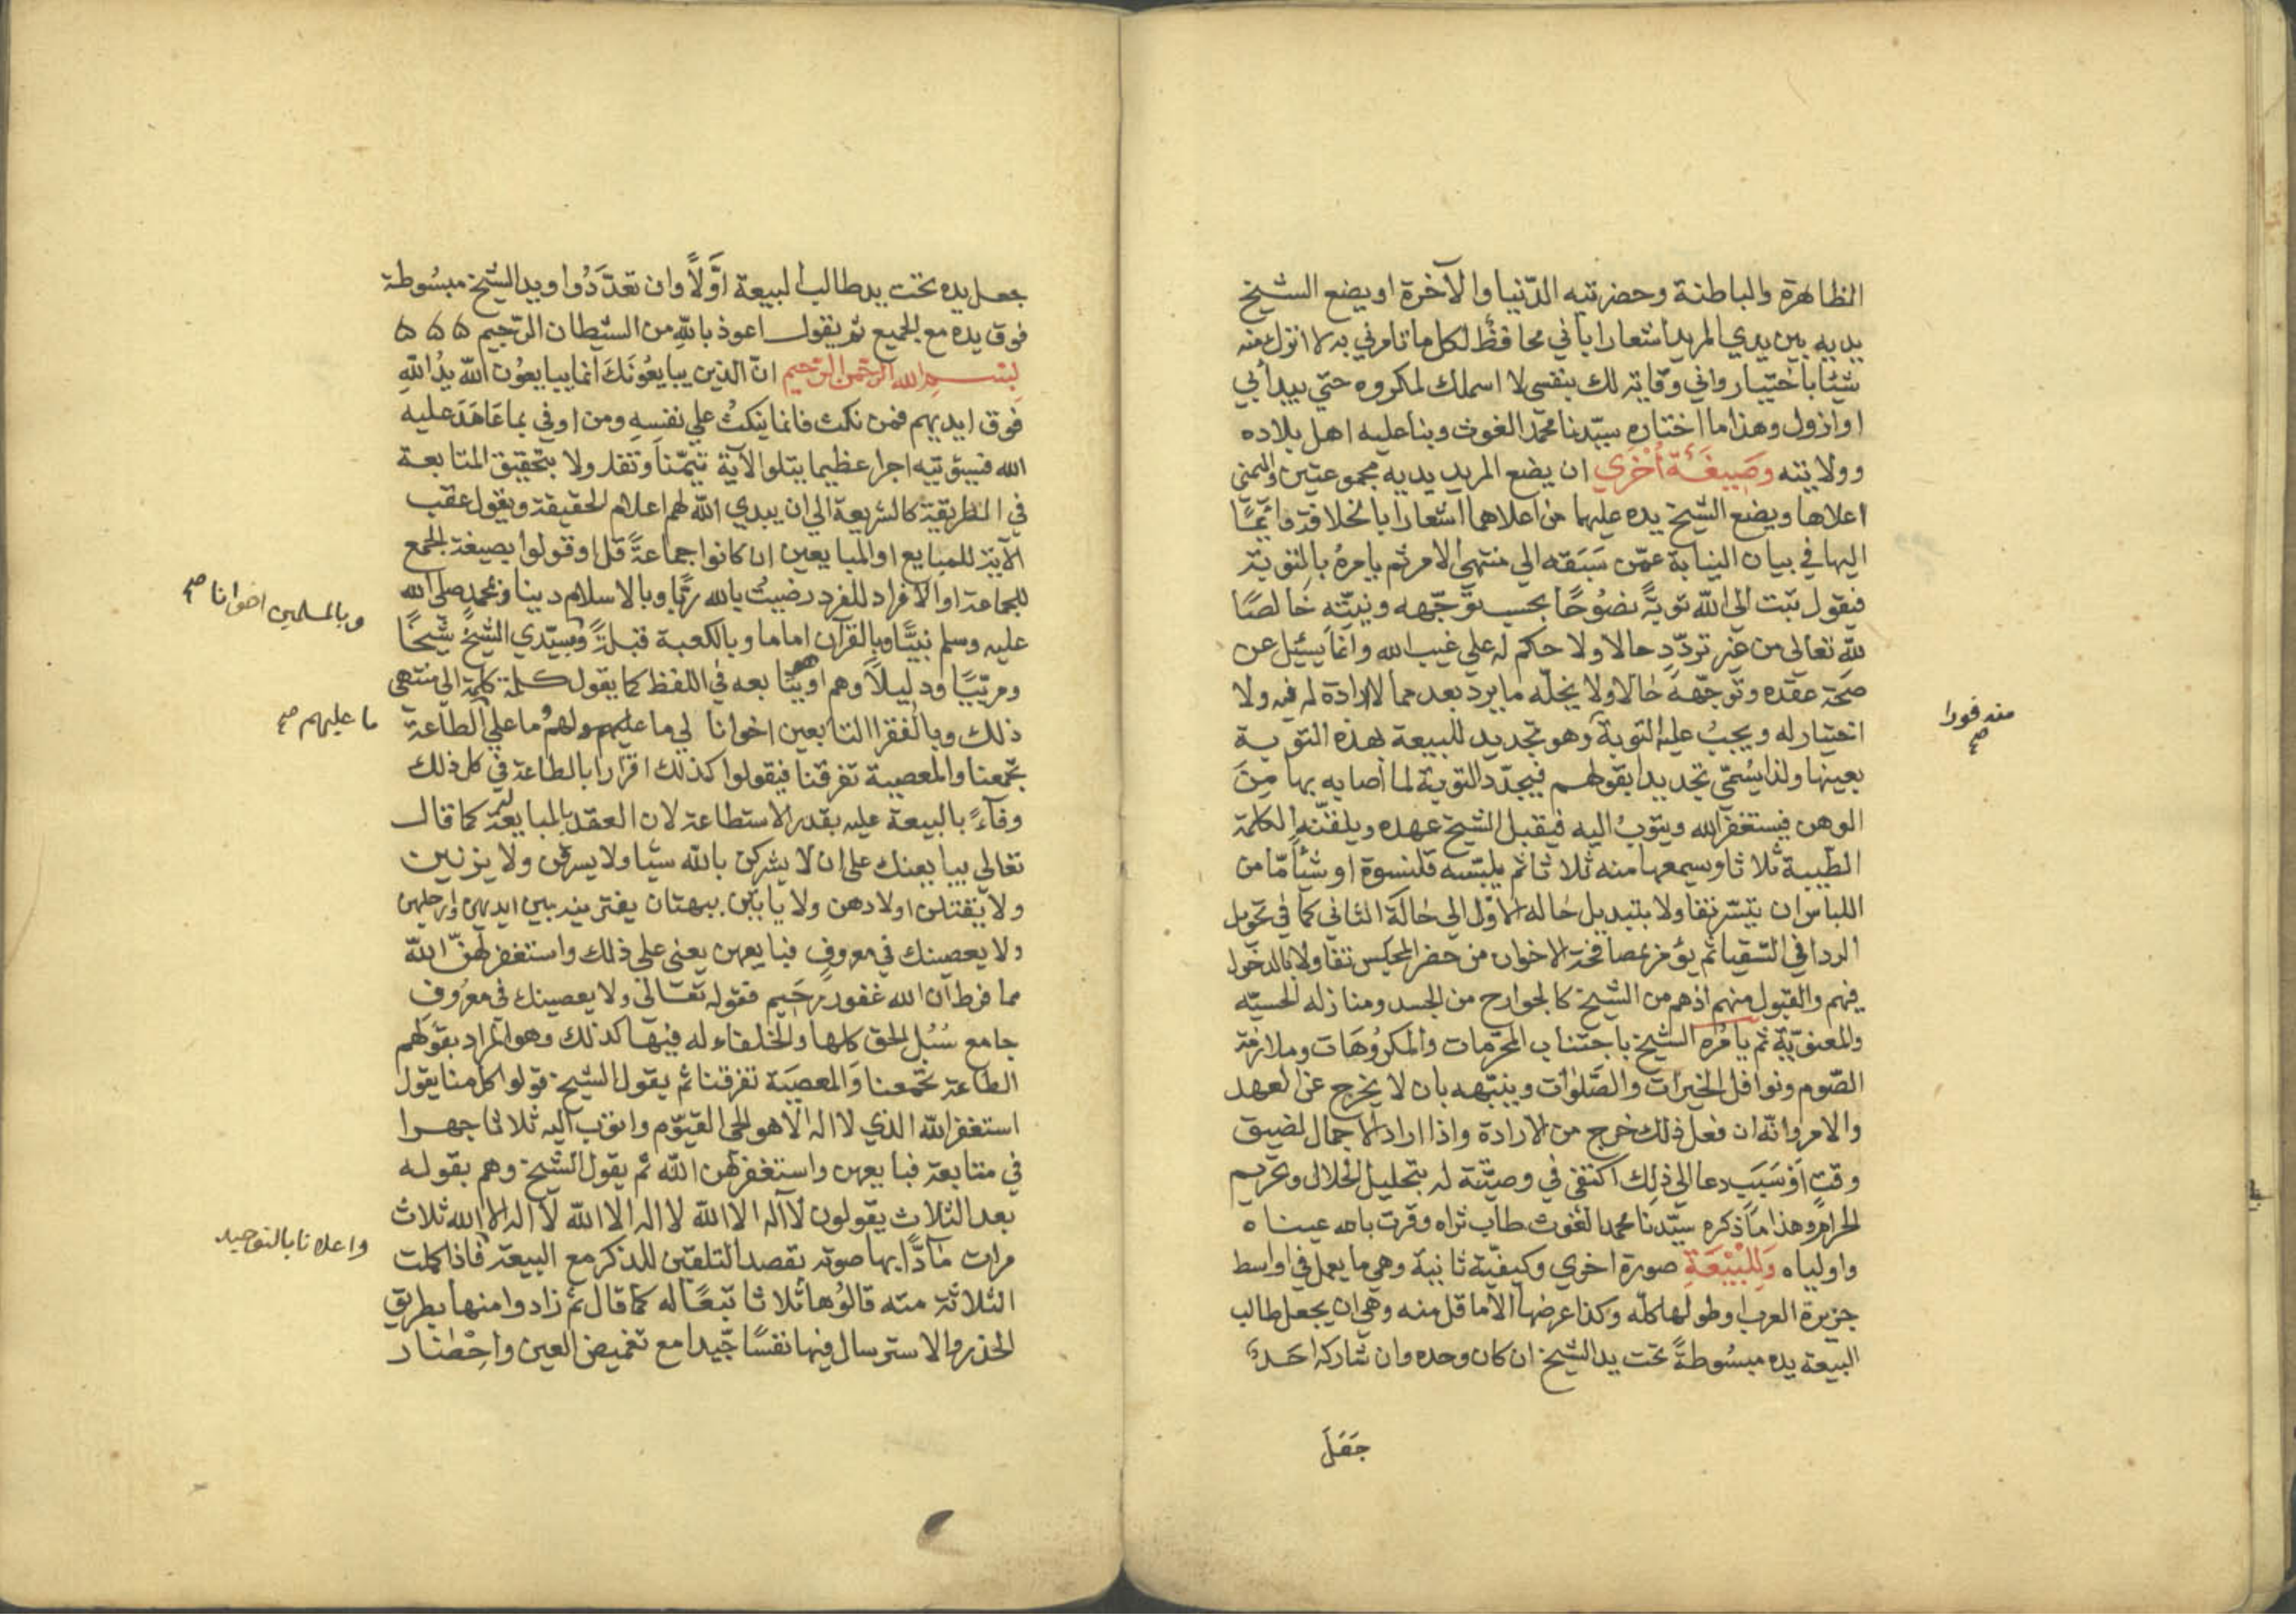 الظاهرة والباطنة وحضرتيه الدّنيا والآخرة او يضع الشيخ
يديه بين يدي المريد اشعارا باني محافظ لكل ما تامرني به لا اترك منه
شيئا باختيار واني وقاية لك بنفسي لا اسملك لمكروه حتي يبدأ بي
او ازول وهذا ما اختاره سيّدنا محمّد الغوث وبنا عليه اهل بلاده
وولايته وصيغة أخري ان يضع المريد يديه مجموعتين واليمني
اعلاها ويضع الشيخ يده عليهما من اعلاهما اشعارا بالخلافة
اليها في بيان النيابة عمّن سَبَقه الي منتهي الامر ثم يامره بالتوبة
فيقول تبت الي الله توبةً نصُوحًا بحسب توجّهه ونيّته خالصًا
لله تعالي من غير تردّد حالا ولا حكم له علي غيب الله وانما يسئل عن
صحّة عقده وتوجّهه حالا ولا يخلّه ما يرد بعد مما لا ارادة له فيه ولا
اختيار له ويجب عليه التوبة وهو تجديد للبيعة بهذه التوبة
بعينها ولذا يسُمّي تجديدا بقولهم فيجدّد التوبة لما أصابه بها مِنَ
الوهن فيستغفر الله ويتوب اليه فيقبل الشيخ عهده ويلقّنه الكلمة
الطّيبة ثلاثا ويسمعها منه ثلاثا ثم يلبسّه قلنسوة او شيأ مّا من
اللباس ان تيسّر تفاولا بتبديل حاله الاوّل الي حالة الثاني كما في تحويل
الردا في السّقيا ثم يؤمر بمصافحة الاخوان من حضر المجلس تفاولا بالدخول
فيهم والقبول منهم اذ هم من الشيخ كالجوارح من الجسد ومنازله الحسيّه
والمعنويّة ثم يامُره الشيخ باجتناب المحرّمات والمكروُهَات وملازمة
الصّوم ونوافل الخيرات والصَّلوٰات وينبّهه بان لا يخرج عن العهد
والامر وانّه ان فعل ذلك خرج من الارادة واذا اراد الاجمال لضيق
وقتٍ اوْ سَبَبٍ دعا الي ذلِك اكتفي في وصيّته له بتحليل الحلال وتحريم
الحرام وهذا مَا ذكره سيّدنا محمد الغوث طاب ثراه وقرت بالله عيناه
واولياه وَلِلْبَيْعَةِ صورة اخري وكيفيّة ثانية وهي ما يعمل في اواسط
جزيرة العرب وطولها كله وكذا عرضها الاما قل منه وهي ان يجعل طالب
البيعة يده مبسُوطةً تحت يد الشيخ ان كان وحده وان شاركه احَدٌ
جَعَلَ
منه فورا
صح
جعل يده تحت يد طالب البيعة اوَّلاً وان تعدّدُوا ويد الشيخ مبسُوطة
فوق يده مع الجميع ثم يقول اعوذ بالله من الشيطان الرّجيم
بسم الله الرّحمن الرّحيم انّ الذين يبايعُونَكَ انما يبايعوُن الله يدُ اللهِ
فوق ايديهم فمن نكث فانما ينكثُ علي نفسِهِ ومن اوفي بما عَاهَدَ عليه
الله فسيؤتيه اجرا عظيما يتلو الآية تيمّناً وتفاولا بتحقيق المتابعة
في الطريقة كالشريعة الي ان يبدي الله لهم اعلام الحقيقة ويقول عقب
الآية للمبايع او المبايعين ان كانوا جماعةً قل او قولوا بصيغة الجمع
للجماعة او الافراد للفرد رضيتُ بالله ربًّا وبالاسلام دينا وبمحمد صلي الله
عليه وسلم نبيًّا وبالقرآن اماما وبالكعبة قبلةً وبسيّدي الشيخ شيخًا
ومربّيًا ودليلاً وهم او يتابعه في اللفظ كما يقول كلمة كلمة الي منتهي
ذلك وبالفقرا التابعين اخوانا لي ما عليهم ولهم ما علي الطاعة
تجمعنا والمعصية تفرقنا فيقولوا كذلك اقرارا بالطاعة في كل ذلك
وفآءً بالبيعة عليه بقدر الاستطاعة لان العقد بالمبايعة كما قال
تعالي يبايعنك علي ان لا يشركن بالله شيا ولا يسرقن ولا يزنين
ولا يقتلن اولادهن ولا ياتين ببهتان يفترينه بين ايديهن وارجلهن
ولا يعصينك في معروفٍ فبايعهن يعني علي ذلك واستغفر لهنّ الله
مما فرط ان الله غفور رحيم فقوله تعالي ولا يعصينك في معرُوفٍ
جامع سُبُل الحق كلها والخلفاء له فيها كذلك وهو المراد بقولهم
الطاعة تجمعنا وَالمعصيَة تفرقنا ثم يقول الشيخ قولوا كلّ منا يقول
استغفر الله الذي لا اله الا هو الحي القيوّم واتوب اليه ثلاثا جهرا
في متابعة فبايعهن واستغفر لهن الله ثم يقول الشيخ وهم بقوله
بعد الثلاث يقولون لا آله الا الله لا اله الا الله لا اله الا الله ثلاث
مرات مادًّا بها صوته بقصد التلقين للذكر مع البيعة فاذا كملت
الثلاثة منه قالوُها ثلاثا تبعًا له كما قال ثم زادوا منها بطريق
الحذر والاسترسال فيها نفسًا جيّدا مع تغميض العين واحِْضار
وبالمسلمين اخوانا صح
ما عليهم صح
واعلانا بالتوحيد